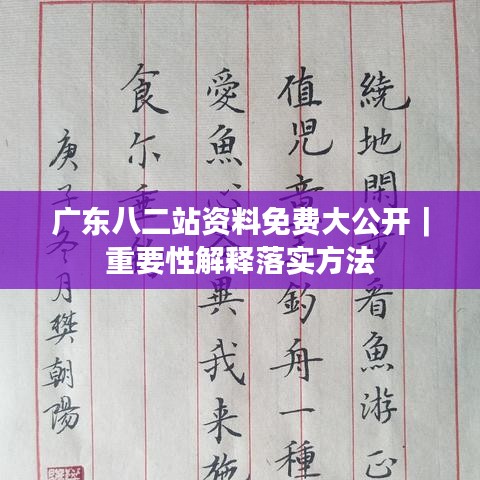 广东八二站资料免费大公开｜
重要性解释落实方法
繞地閑步看魚游正
值児童釣舟一種
愛魚心異我来施
食尔垂
庚子冬月樊朝陽